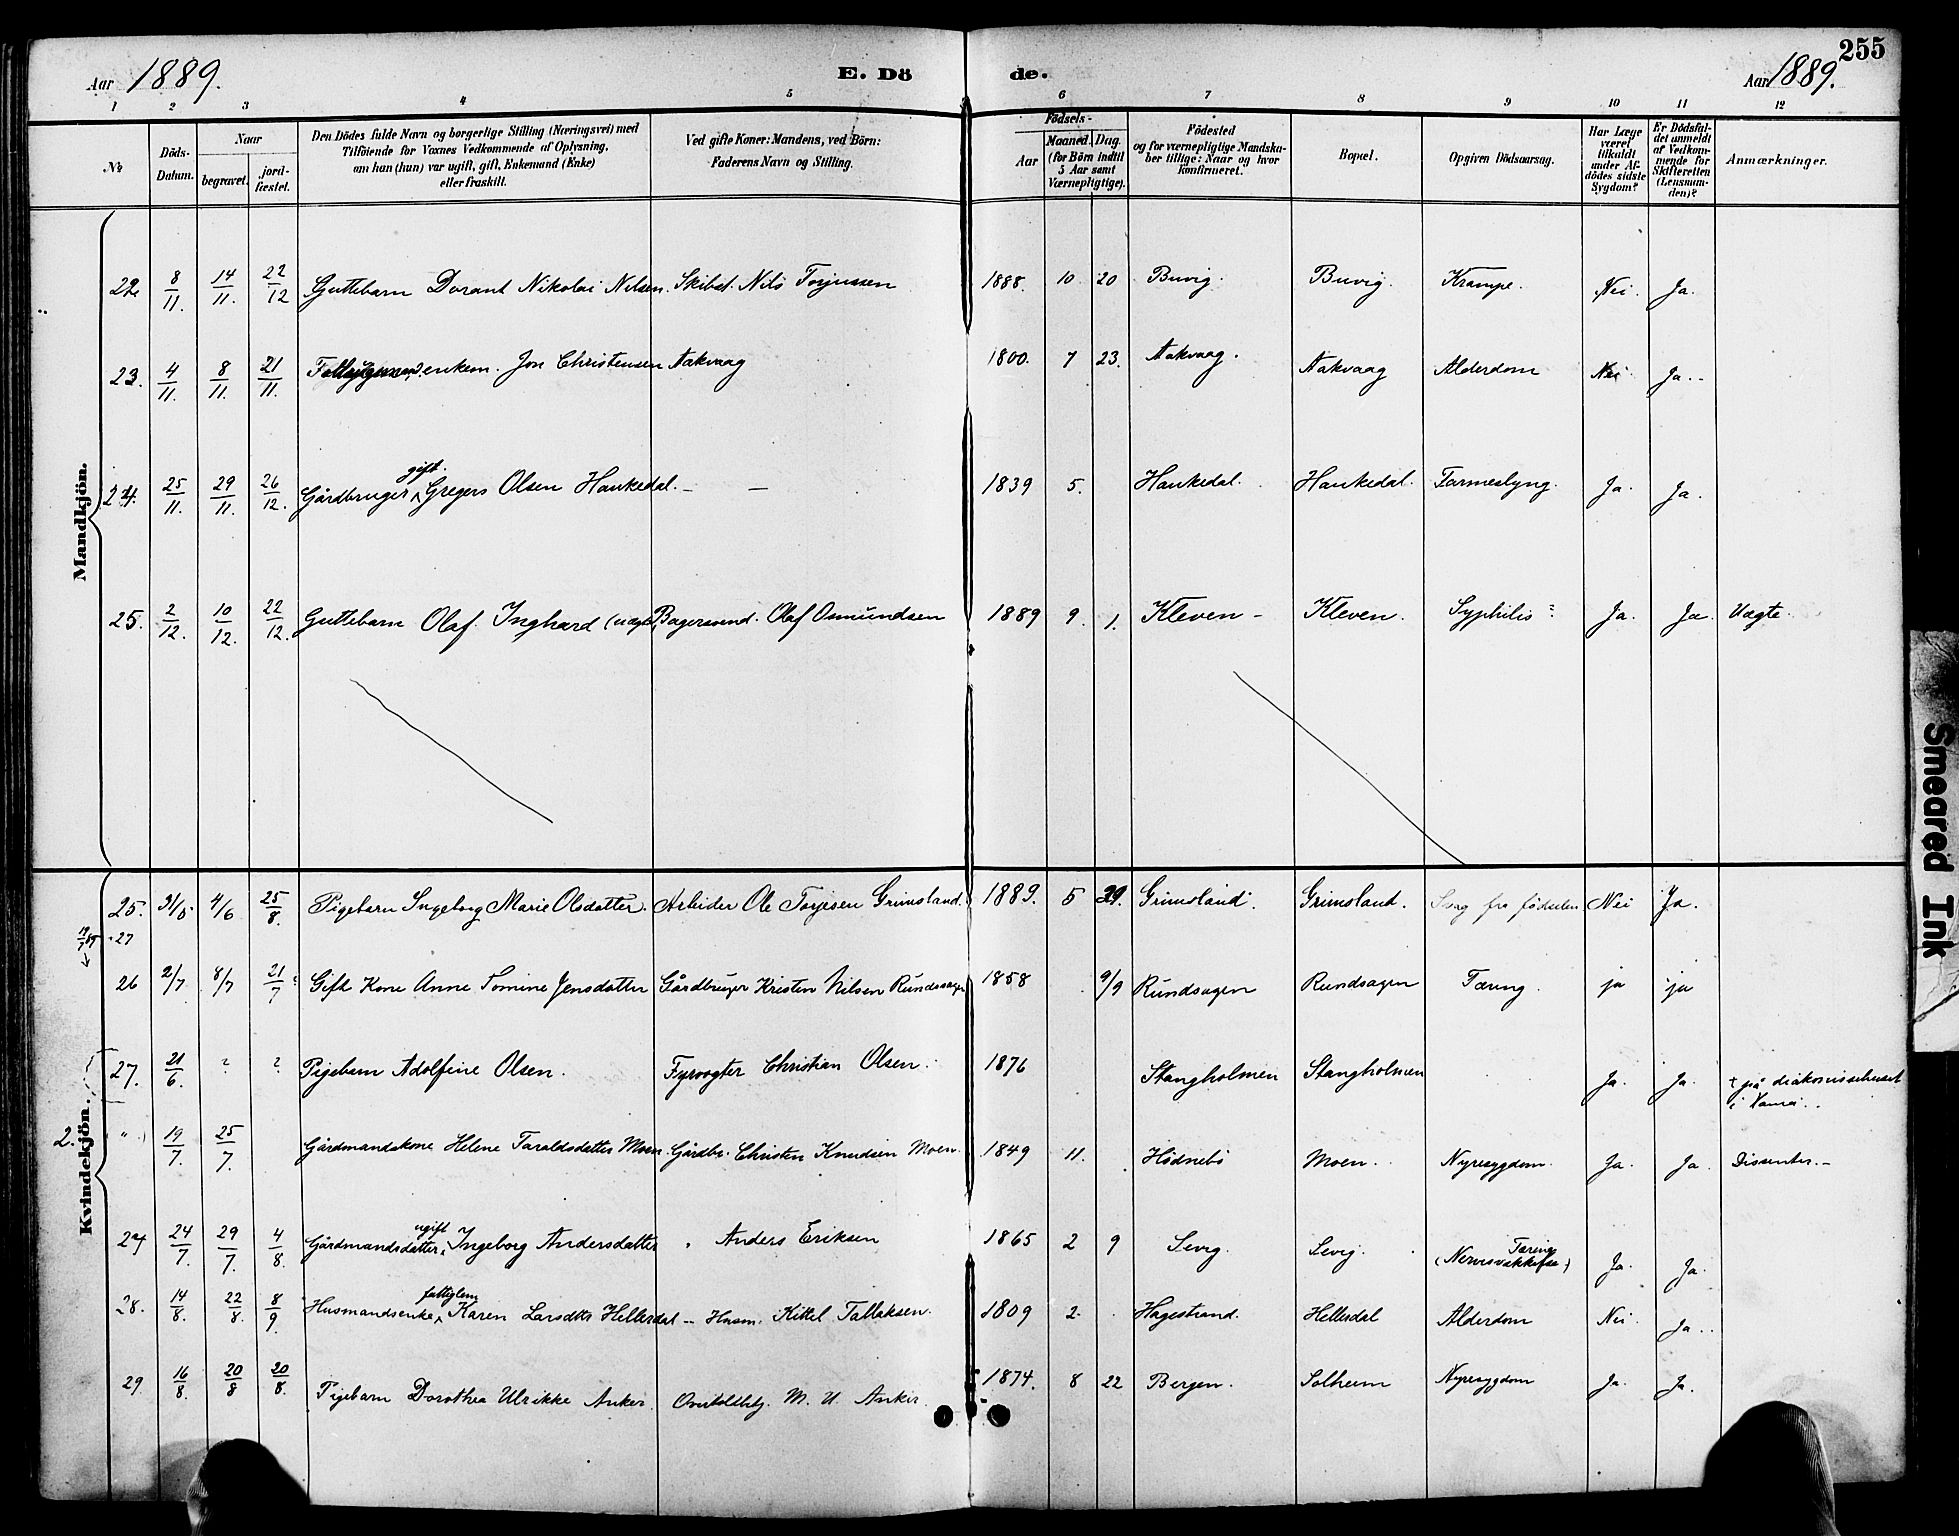 255
Aar 1889. E. Dö de. Aar 1889.
1 2 3 4 5 6 7 8 9 10 11 12
№ Döds-Datum. Naar begravet. jord-fæstet. Den Dödes fulde Navn og borgerlige Stilling (Næringsvei) med Tilföiende for Voxnes Vedkommende af Oplysning, om han (hun) var ugift, gift, Enkemand (Enke) eller fraskilt. Ved gifte Koner: Mandens, ved Börn: Faderens Navn og Stilling. Födsels- Aar Maaned. Dag. (for Börn indtil 5 Aar samt Værnepligtige). Födested og for værnepligtige Mandska-ber tillige: Naar og hvor konfirmeret. Bopæl. Opgiven Dödsaarsag. Har Læge været tilkaldt under Af-dödes sidste Sygdom? Er Dödsfal-det anmeldt af Vedkom-mende for Skifteretten (Lensman-den)? Anmærkninger.
Mandkjön.
22 8/11. 14/11. 22/12 Guttebarn Dorant Nikolai Nilsen. Skibst. Nils Torjussen 1888. 10 20 Buvig. Buvig. Krampe. Nei. Ja.
23. 4/11. 8/11. 21/11. enkem. Jon Christensen Aakvaag 1800. 7 23. Aakvaag. Aakvaag Alderdom Nei Ja.
24. 25/11. 29/11. 26/12. Gårdbruger gift Gregers Olsen Haukedal. – – 1839 5. Haukedal. Haukedal. Tarmeslyng. Ja. Ja.
25. 2/12. 10/12. 22/12. Guttebarn Olaf Inghard (uægte) Bagersvend. Olaf Osmundsen 1889 9. 1. Kleven – Kleven. Syphilis? Ja. Ja. Uægte.
Kvindekjön.
25. 31/5 4/6 25/8. Pigebarn Ingeborg Marie Olsdatter. Arbeider Ole Torjesen Grimsland. 1889. 5 29. Grimsland. Grimsland. Svag fra födselen Nei Ja.
26 2/7 8/7 21/7? Gift Kone Anne Tomine Jensdatter Gårdbruger Kristen Nilsen Rundsagen 1858 9/9 Rundsagen Rundsagen Tæring. ja ja
27. 21/6. ? ? Pigebarn Adolfine Olsen. Fyrvogter Christian Olsen. 1876 Stangholmen Stangholmen Ja. Ja. † på diakonissehuset i
2. " 19/7. 25/7. Gårdmandskone Helene Taraldsdatter Moen. Gårdbr. Christen Knudsen Moen. 1849 11. Hödnebö Moen. Nyresygdom. Ja. Ja. Dissenter. –
27 24/7. 29/7. 4/8. Gårdmandsdatter ugift Ingeborg Andersdatter " Anders Eriksen 1865 2 9 Sevig. Sevig. Tæring Ja. Ja.
28. 14/8. 22/8. 8/9. Husmandsenke, fattiglem Karen Larsdtr Hellersdal – Husm. Kittel Tallaksen. 1809 2. Hagestrand. Hellersdal Alderdom Nei. Ja.
29. 16/8. 20/8 20/8. Pigebarn Dorothea Ulrikke Anker. Overtoldbtj. M. U. Anker. 1874. 8 22 Bergen. Solheim Nyresygdom Ja. Ja.
Smeared Ink